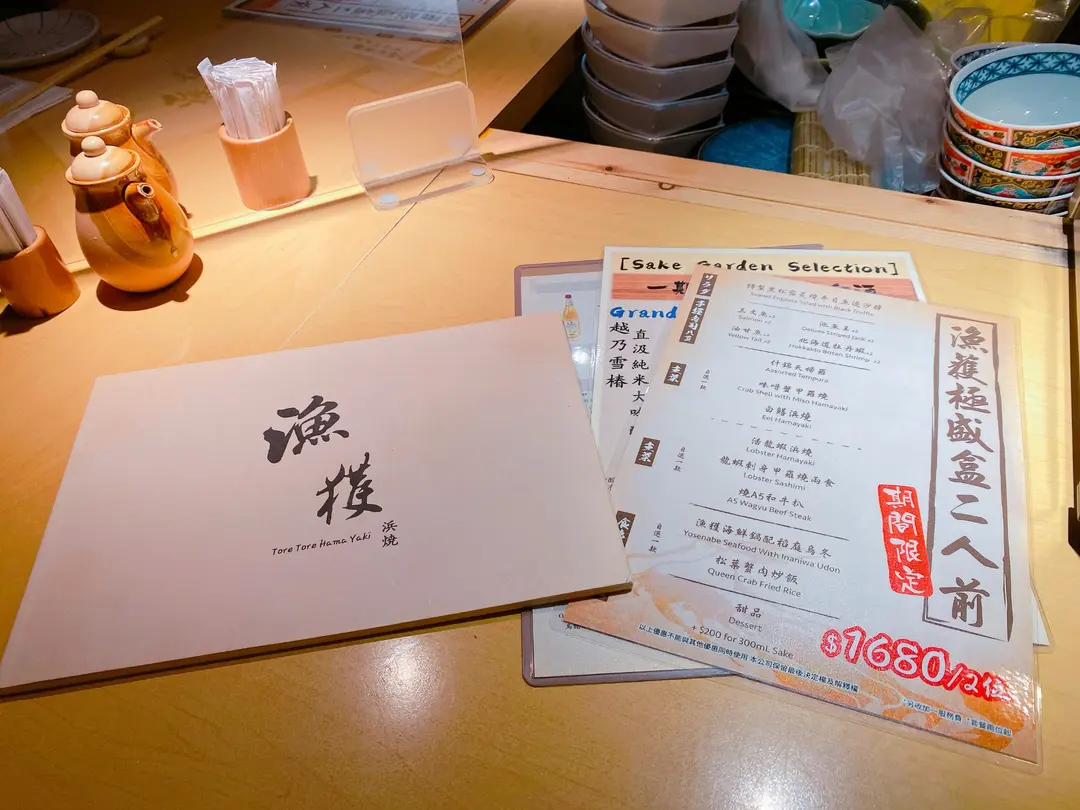 漁獲
浜燒
Tore Tore Hama Yaki
[Sake Garden Selection]
Grand
越乃雪椿
直汲純米大吟
漁獲極盛盒二人前
期間限定
Seared Engawa Salad with Black Truffle
三文魚×2
Salmon ×2
池魚王×2
Deluxe Striped Jack ×2
油甘魚×2
Yellow Tail ×2
北海道牡丹蝦×2
Hokkaido Botan Shrimp ×2
主菜
自選一款
什錦天婦羅
Assorted Tempura
味噌蟹甲羅燒
Crab Shell with Miso Hamayaki
白鱔浜燒
Eel Hamayaki
主菜
自選一款
活龍蝦浜燒
Lobster Hamayaki
龍蝦刺身甲羅燒兩食
Lobster Sashimi
燒A5和牛扒
A5 Wagyu Beef Steak
自選一款
漁獲海鮮鍋配稻庭烏冬
Yosenabe Seafood With Inaniwa Udon
松葉蟹肉炒飯
Queen Crab Fried Rice
甜品
Dessert
+ $200 for 300mL Sake
$1680/2位
以上優惠不能與其他優惠同時使用 本公司保留最後決定權及解釋權
*另收加一服務費 *套餐兩位起